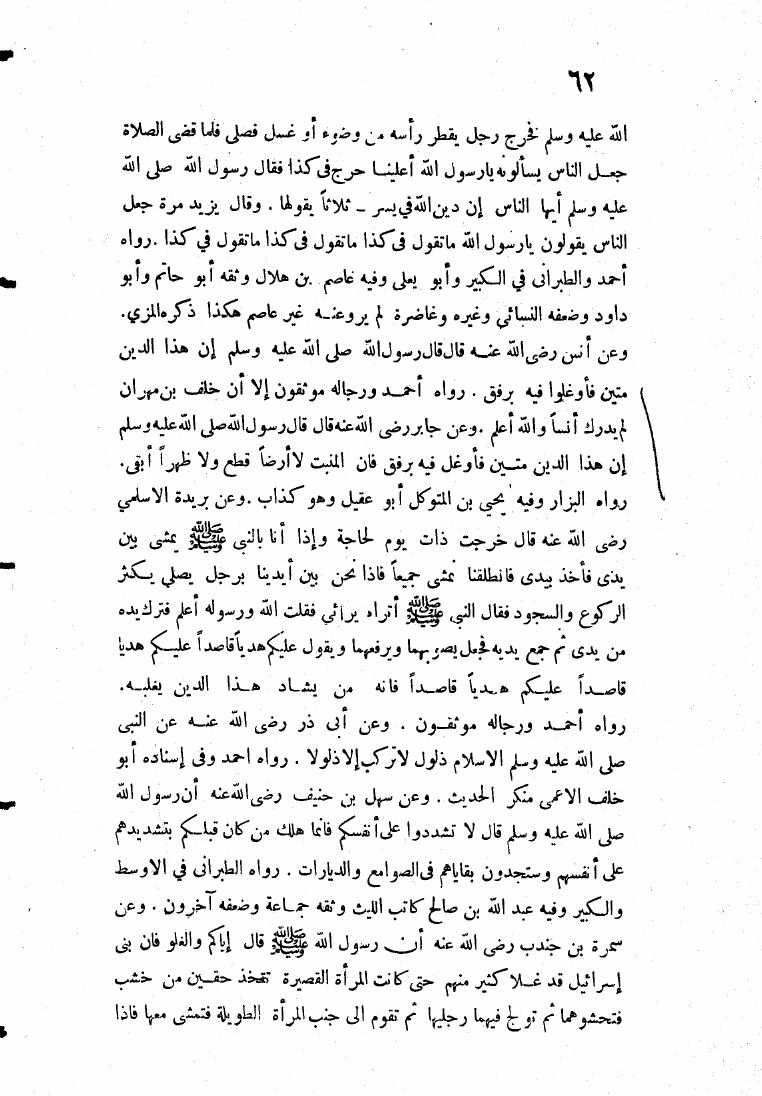 ٦٢
الله عليه وسلم فخرج رجل يقطر رأسه من وضوء أو غسل فصلى فلما قضى الصلاة
جعــل الناس يسألونه يارسول الله أعلينــا حرج في كذا فقال رسول الله صلى الله
عليه وسلم أيها الناس إن دين الله في يسر ـ ثلاثاً يقولها . وقال يزيد مرة جعل
الناس يقولون يارسول الله ماتقول فى كذا ماتقول فى كذا ماتقول في كذا . رواه
أحمد والطبرانى في الكبير وأبو يعلى وفيه عاصم بن هلال وثقه أبو حاتم وأبو
داود وضعفه النسائي وغيره وغاضرة لم يرو عنــه غير عاصم هكذا ذكره المزي.
وعن أنس رضى الله عنــه قال قال رسول الله صلى الله عليه وسلم إن هذا الدين
متين فأوغلوا فيه برفق . رواه أحمــد ورجاله موثقون إلا أن خلف بن مهران
لم يدرك أنساً والله أعلم . وعن جابر رضى الله عنه قال قال رسول الله صلى الله عليه وسلم
إن هذا الدين متــين فأوغل فيه برفق فان المنبت لا أرضاً قطع ولا ظهراً أبقى.
رواه البزار وفيه يحيى بن المتوكل أبو عقيل وهو كذاب . وعن بريدة الاسلمي
رضى الله عنه قال خرجت ذات يوم لحاجة وإذا أنا بالنبى ﷺ يمشى بين
يدى فأخذ بيدى فانطلقنا نمشى جميعاً فاذا نحن بين أيدينا برجل يصلي يكثر
الركوع والسجود فقال النبى ﷺ أتراه يرائي فقلت الله ورسوله أعلم فترك يده
من يدى ثم جمع يديه فجعل يصوبهما ويرفعهما ويقول عليكم هدياً قاصداً عليكم هديا
قاصــداً عليــكم هــدياً قاصــداً فانه من يشــاد هــذا الدين يغلبــه.
رواه أحمــد ورجاله موثقــون . وعن أبى ذر رضى الله عنــه عن النبى
صلى الله عليه وسلم الاسلام ذلول لا تركب إلا ذلولا . رواه احمد وفى إسناده أبو
خلف الاعمى منكر الحديث . وعن سهل بن حنيف رضى الله عنه أن رسول الله
صلى الله عليه وسلم قال لا تشددوا على أنفسكم فانما هلك من كان قبلكم بتشديدهم
على أنفسهم وستجدون بقاياهم فى الصوامع والديارات . رواه الطبرانى في الاوسط
والكبير وفيه عبد الله بن صالح كاتب الليث وثقه جمــاعة وضعفه آخرون . وعن
سمرة بن جندب رضى الله عنه أن رسول الله ﷺ قال إياكم والغلو فان بنى
إسرائيل قد غــلا كثير منهم حتى كانت المرأة القصيرة تتخذ حقــين من خشب
فتحشوهما ثم تولج فيهما رجليها ثم تقوم الى جنب المرأة الطويلة فتمشى معها فاذا